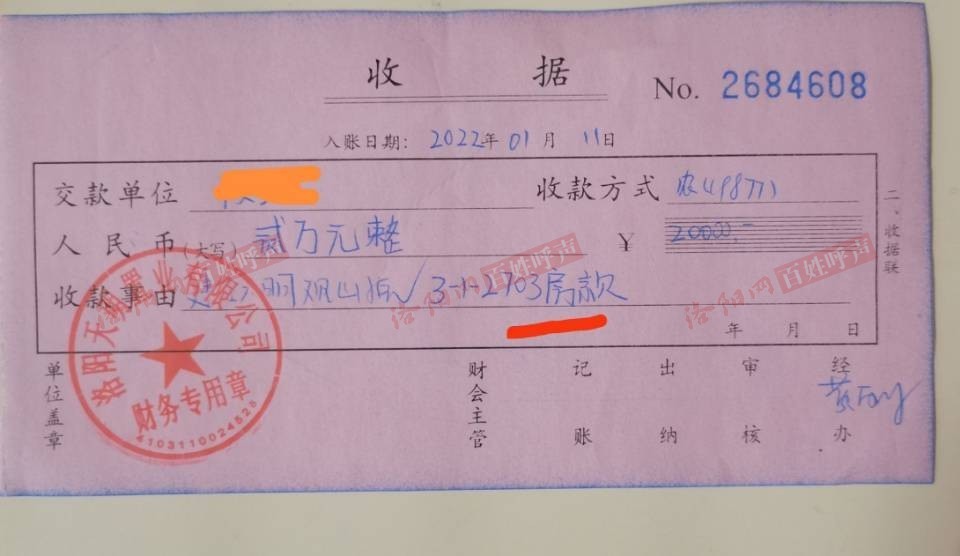 收 据
No. 2684608
入账日期: 2022年 01 月 11日
交款单位
收款方式 农
人民币(大写) 贰万元整 ￥ 20000.-
收款事由 3-1-2703房款
年 月 日
二、收据联
单位盖章
财会主管
记账
出纳
审核
经办
洛阳天 置业有限公司
财务专用章
4103110024525
洛阳网 百姓呼声
洛阳网 百姓呼声
洛阳网 百姓呼声